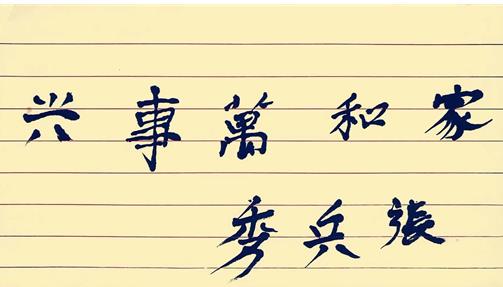 家和萬事兴
張兵秀